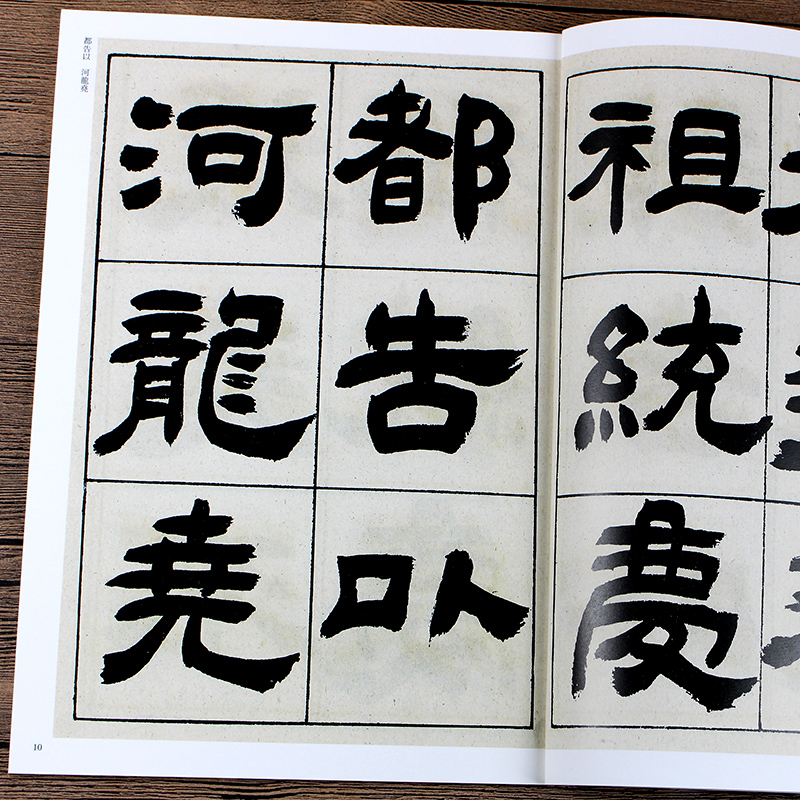 祖統慶
都告以
河龍堯
都告以 河龍堯
10